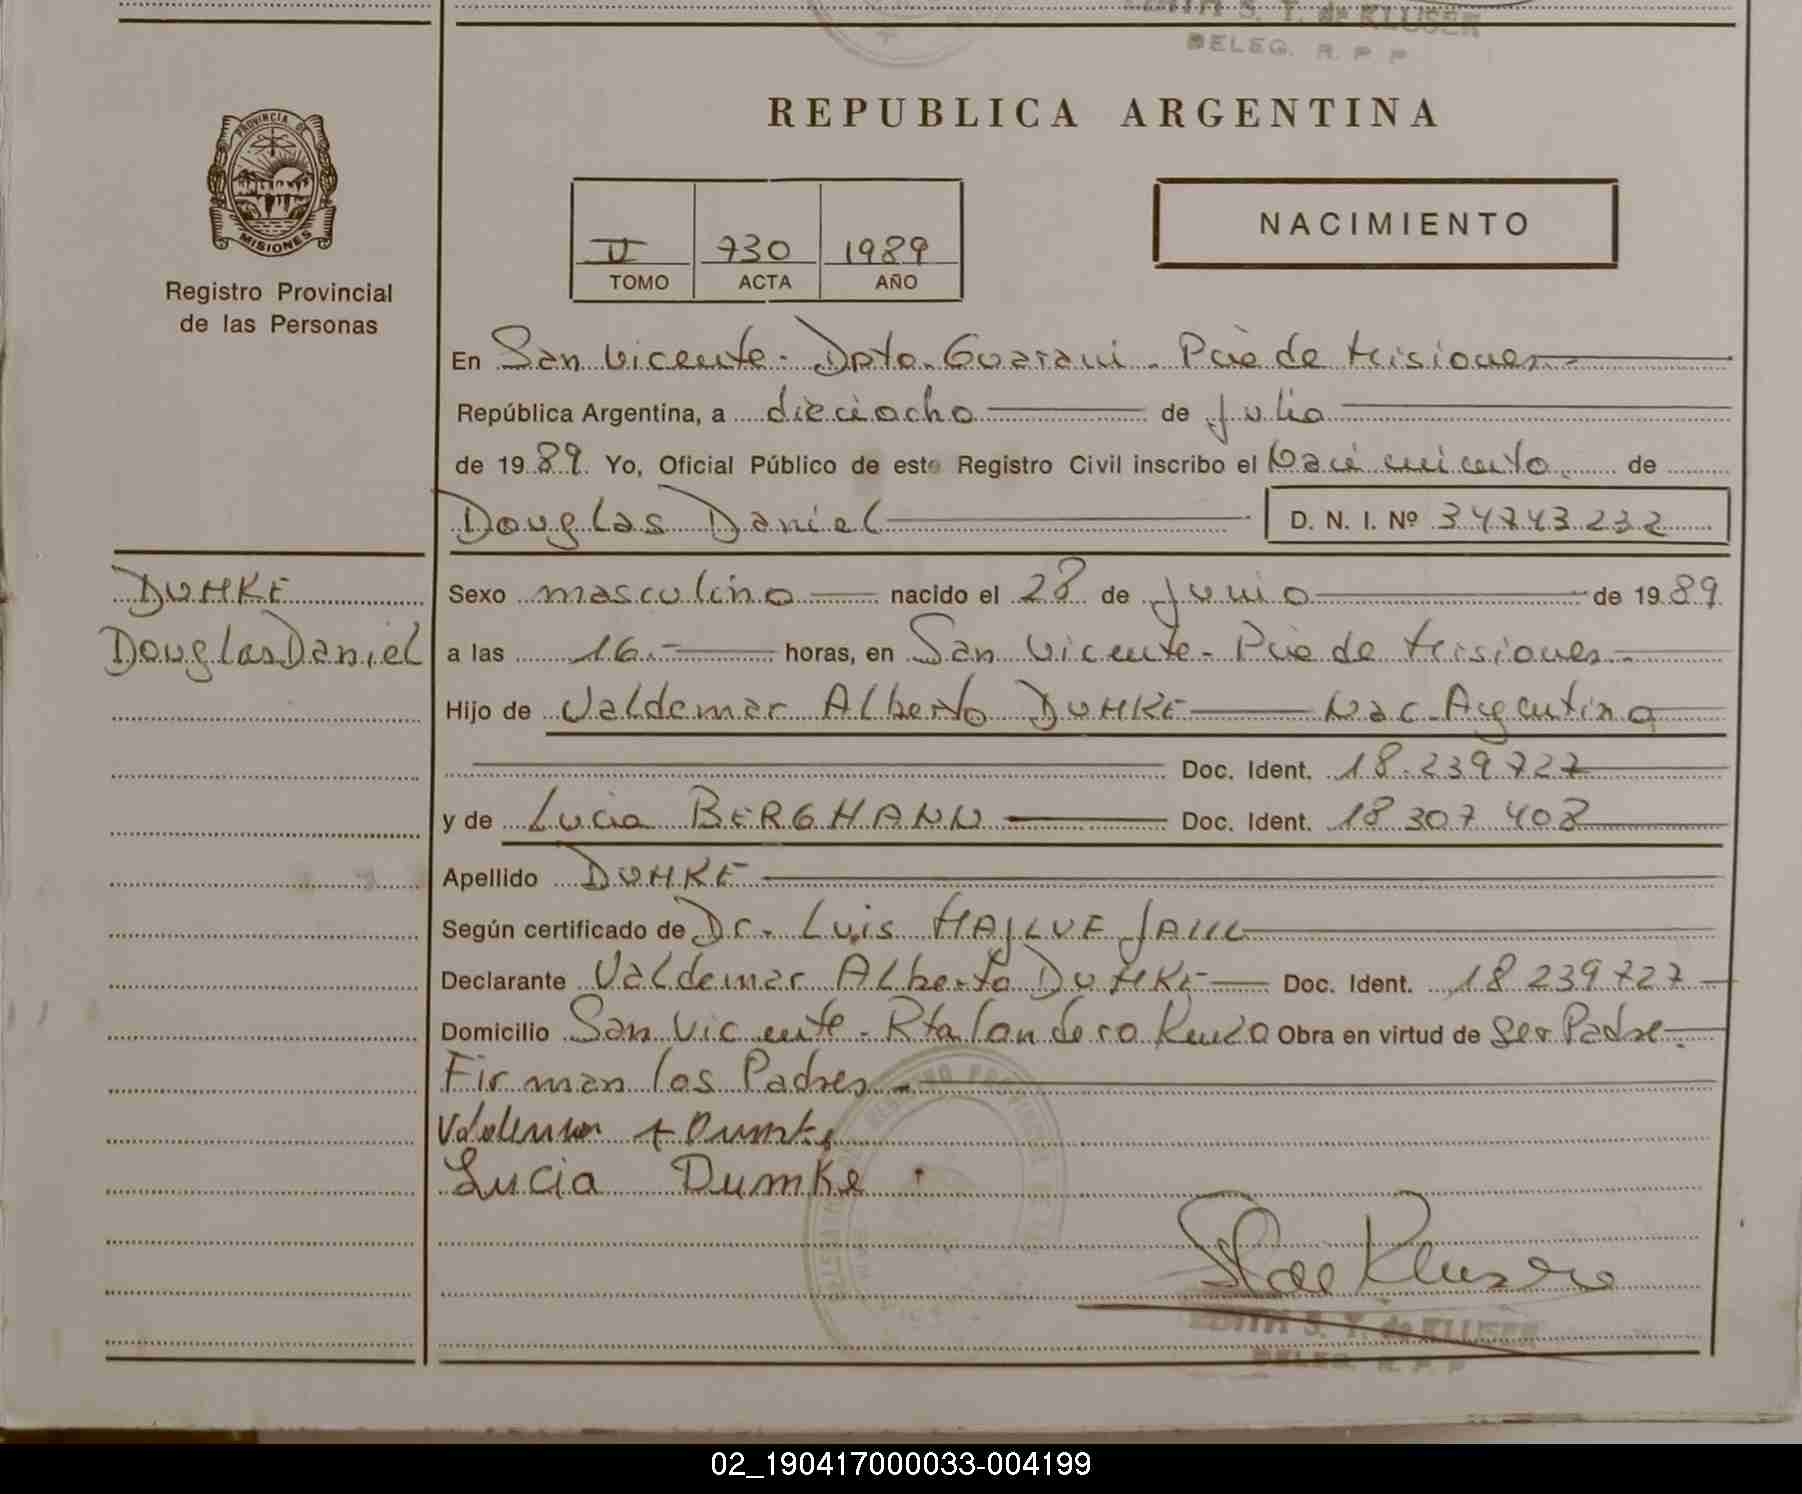 EDITH S. T. de KLUSER
DELEG. R. P. P
PROVINCIA DE
MISIONES
Registro Provincial
de las Personas
REPUBLICA ARGENTINA
NACIMIENTO
II 730 1989
TOMO ACTA AÑO
En San Vicente - Dpto. Guarani - Pcia de Misiones
República Argentina, a dieciocho de Julio
de 1989. Yo, Oficial Público de este Registro Civil inscribo el Nacimiento de
Douglas Daniel D. N. I. Nº 34743232
DUMKE
Douglas Daniel
Sexo masculino nacido el 28 de Junio de 1989
a las 16.- horas, en San Vicente - Pcia de Misiones
Hijo de Valdemar Alberto DUMKE Nac. Argentina
Doc. Ident. 18.239727
y de Lucia BERGMANN Doc. Ident. 18 307 408
Apellido DUMKE
Según certificado de Dr. Luis
Declarante Valdemar Alberto DUMKE Doc. Ident. 18 239727
Domicilio San Vicente - Obra en virtud de Ser Padre.
Firman los Padres.
Valdemar A Dumke
Lucia Dumke
EDITH S. T. de KLUSER
DELEG. R. P. P
02_190417000033-004199